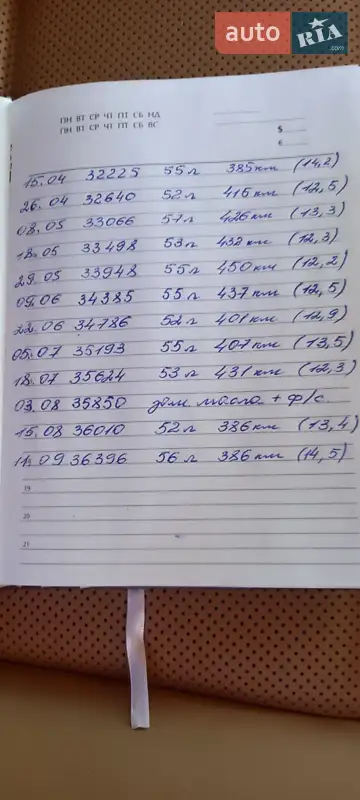 auto RIA
.com
ПН ВТ СР ЧТ ПТ СБ НД
ПН ВТ СР ЧТ ПТ СБ ВС
$
€
15.04 32225 55л 385км (14,2)
26.04 32640 52л 415км (12,5)
08.05 33066 57л 426км (13,3)
18.05 33498 53л 432км (12,3)
29.05 33948 55л 450км (12,2)
09.06 34385 55л 437км (12,5)
22.06 34786 52л 401км (12,9)
05.07 35193 55л 407км (13,5)
18.07 35624 53л 431км (12,3)
03.08 35850 зам. масло + ф/с
15.08 36010 52л 386км (13,4)
11.09 36396 56л 386км (14,5)
19
20
21